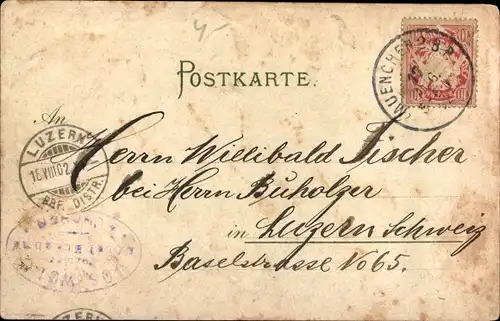 4-
POSTKARTE.
MUENCHEN
An
LUZERN
16.VIII.02
BRF. DISTR.
Herrn Willibald Fischer
bei Herrn Buholzer
in Luzern Schweiz
Baselstrasse No 65.
LUZERN